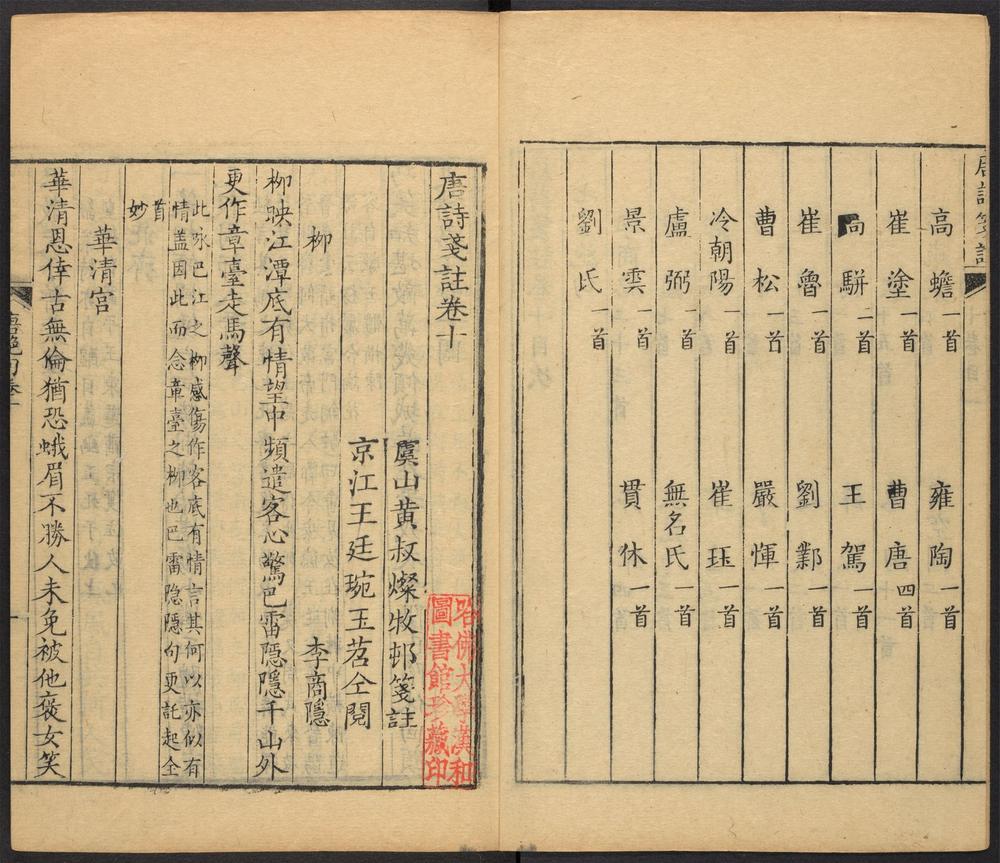 唐詩箋註
高蟾一首 雍陶一首
崔塗一首 曹唐四首
高駢二首 王駕一首
崔魯一首 劉鄴一首
曹松一首 嚴惲一首
冷朝陽一首 崔珏一首
盧弼一首 無名氏一首
景雲一首 貫休一首
劉氏一首
唐詩箋註卷十
虞山黃叔燦牧邨箋註
京江王廷琬玉苕仝閱
柳 李商隱
柳映江潭底有情望中頻遣客心驚巴雷隱隱千山外
更作章臺走馬聲
此咏巴江之柳感傷作客底有情言其何以亦似有
情蓋因此而念章臺之柳也巴雷隐隱句更託起全
首
妙
華清宮
華清恩倖古無倫猶恐蛾眉不勝人未免被他褒女笑
哈佛大學漢和
圖書館珍藏印